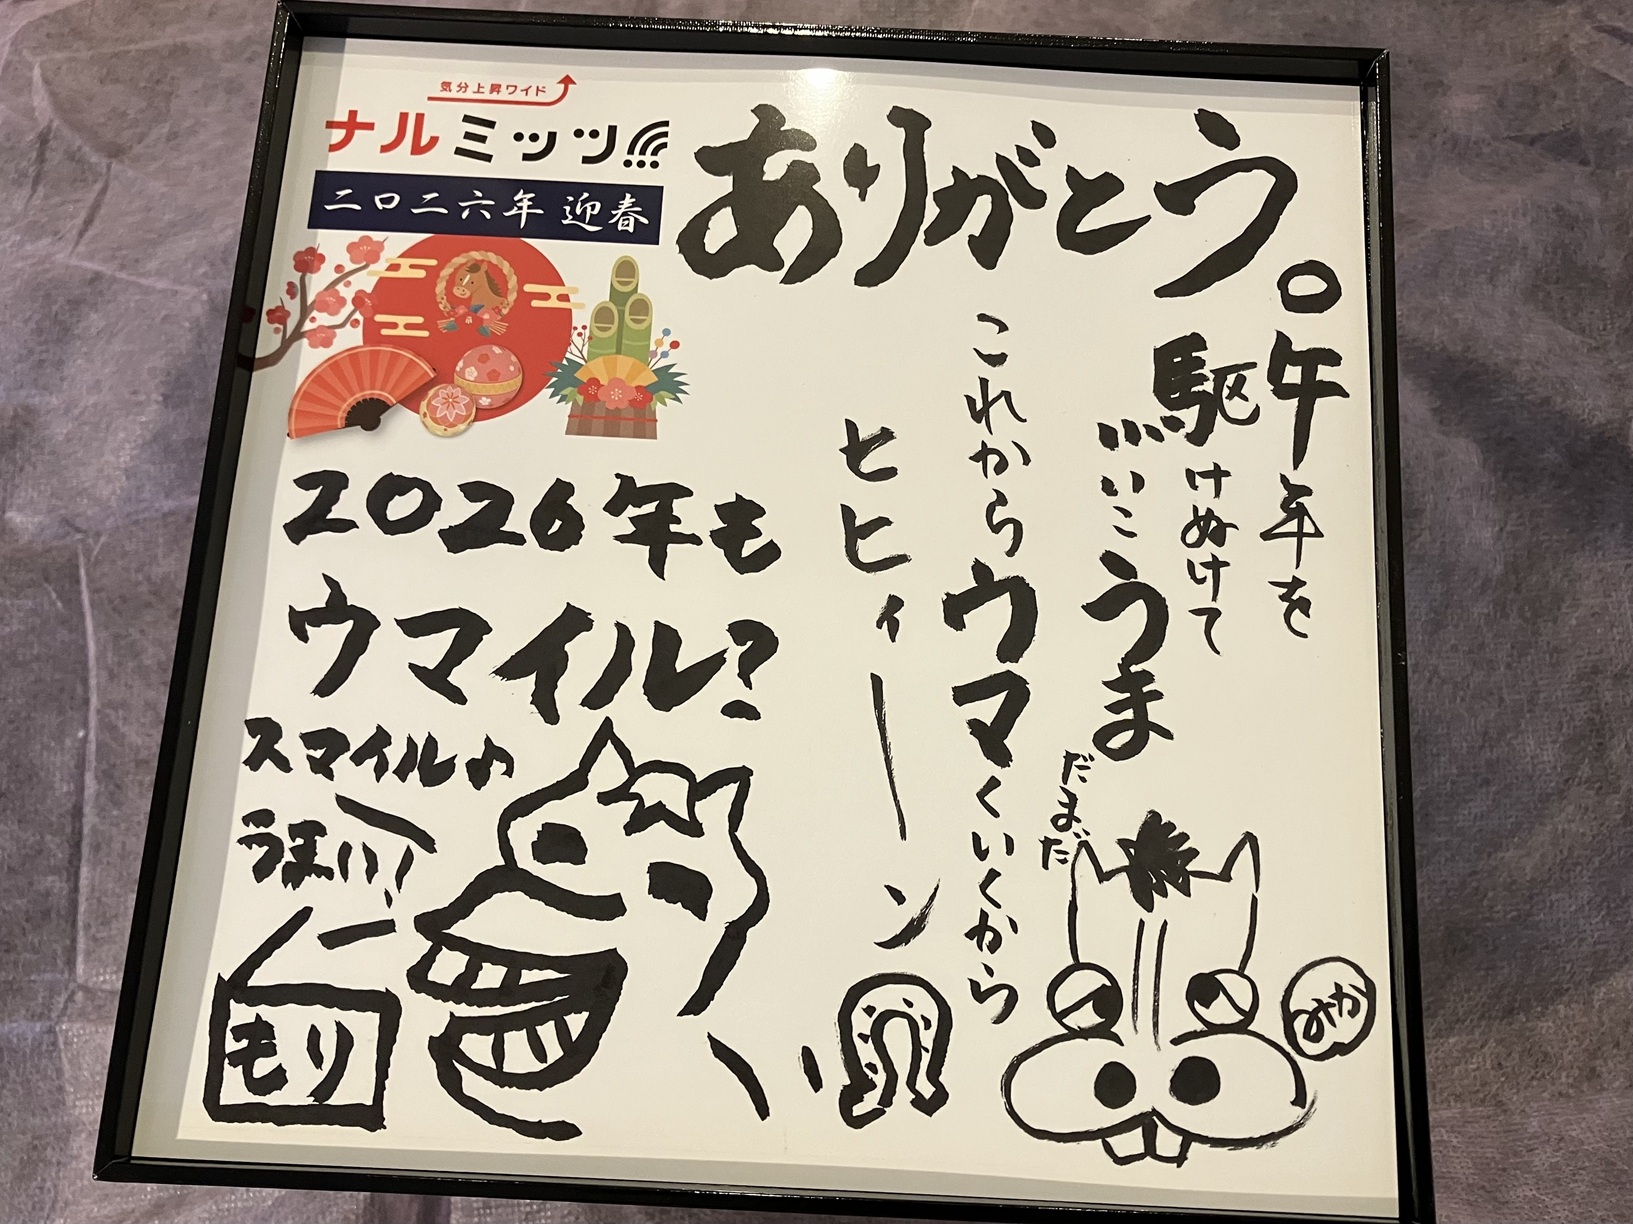 気分上昇ワイド
ナルミッツ
二〇二六年 迎春
ありがとう。
午年を
駆けぬけて
うま
だまだ
これからウマくいくから
ヒヒィーン
みか
2026年も
ウマイル?
スマイル♪
うまい
もり